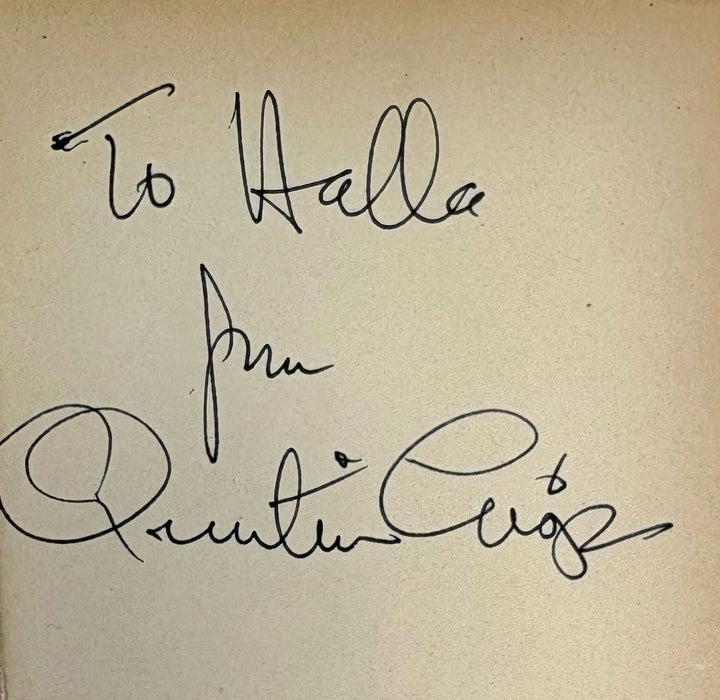 To Halla
from
Quentin Crisp